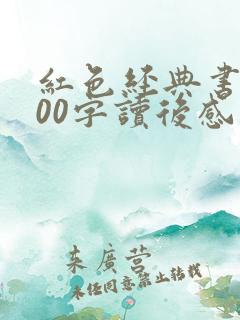 紅色經典書
00字讀後感
來廣營
未经同意禁止转载